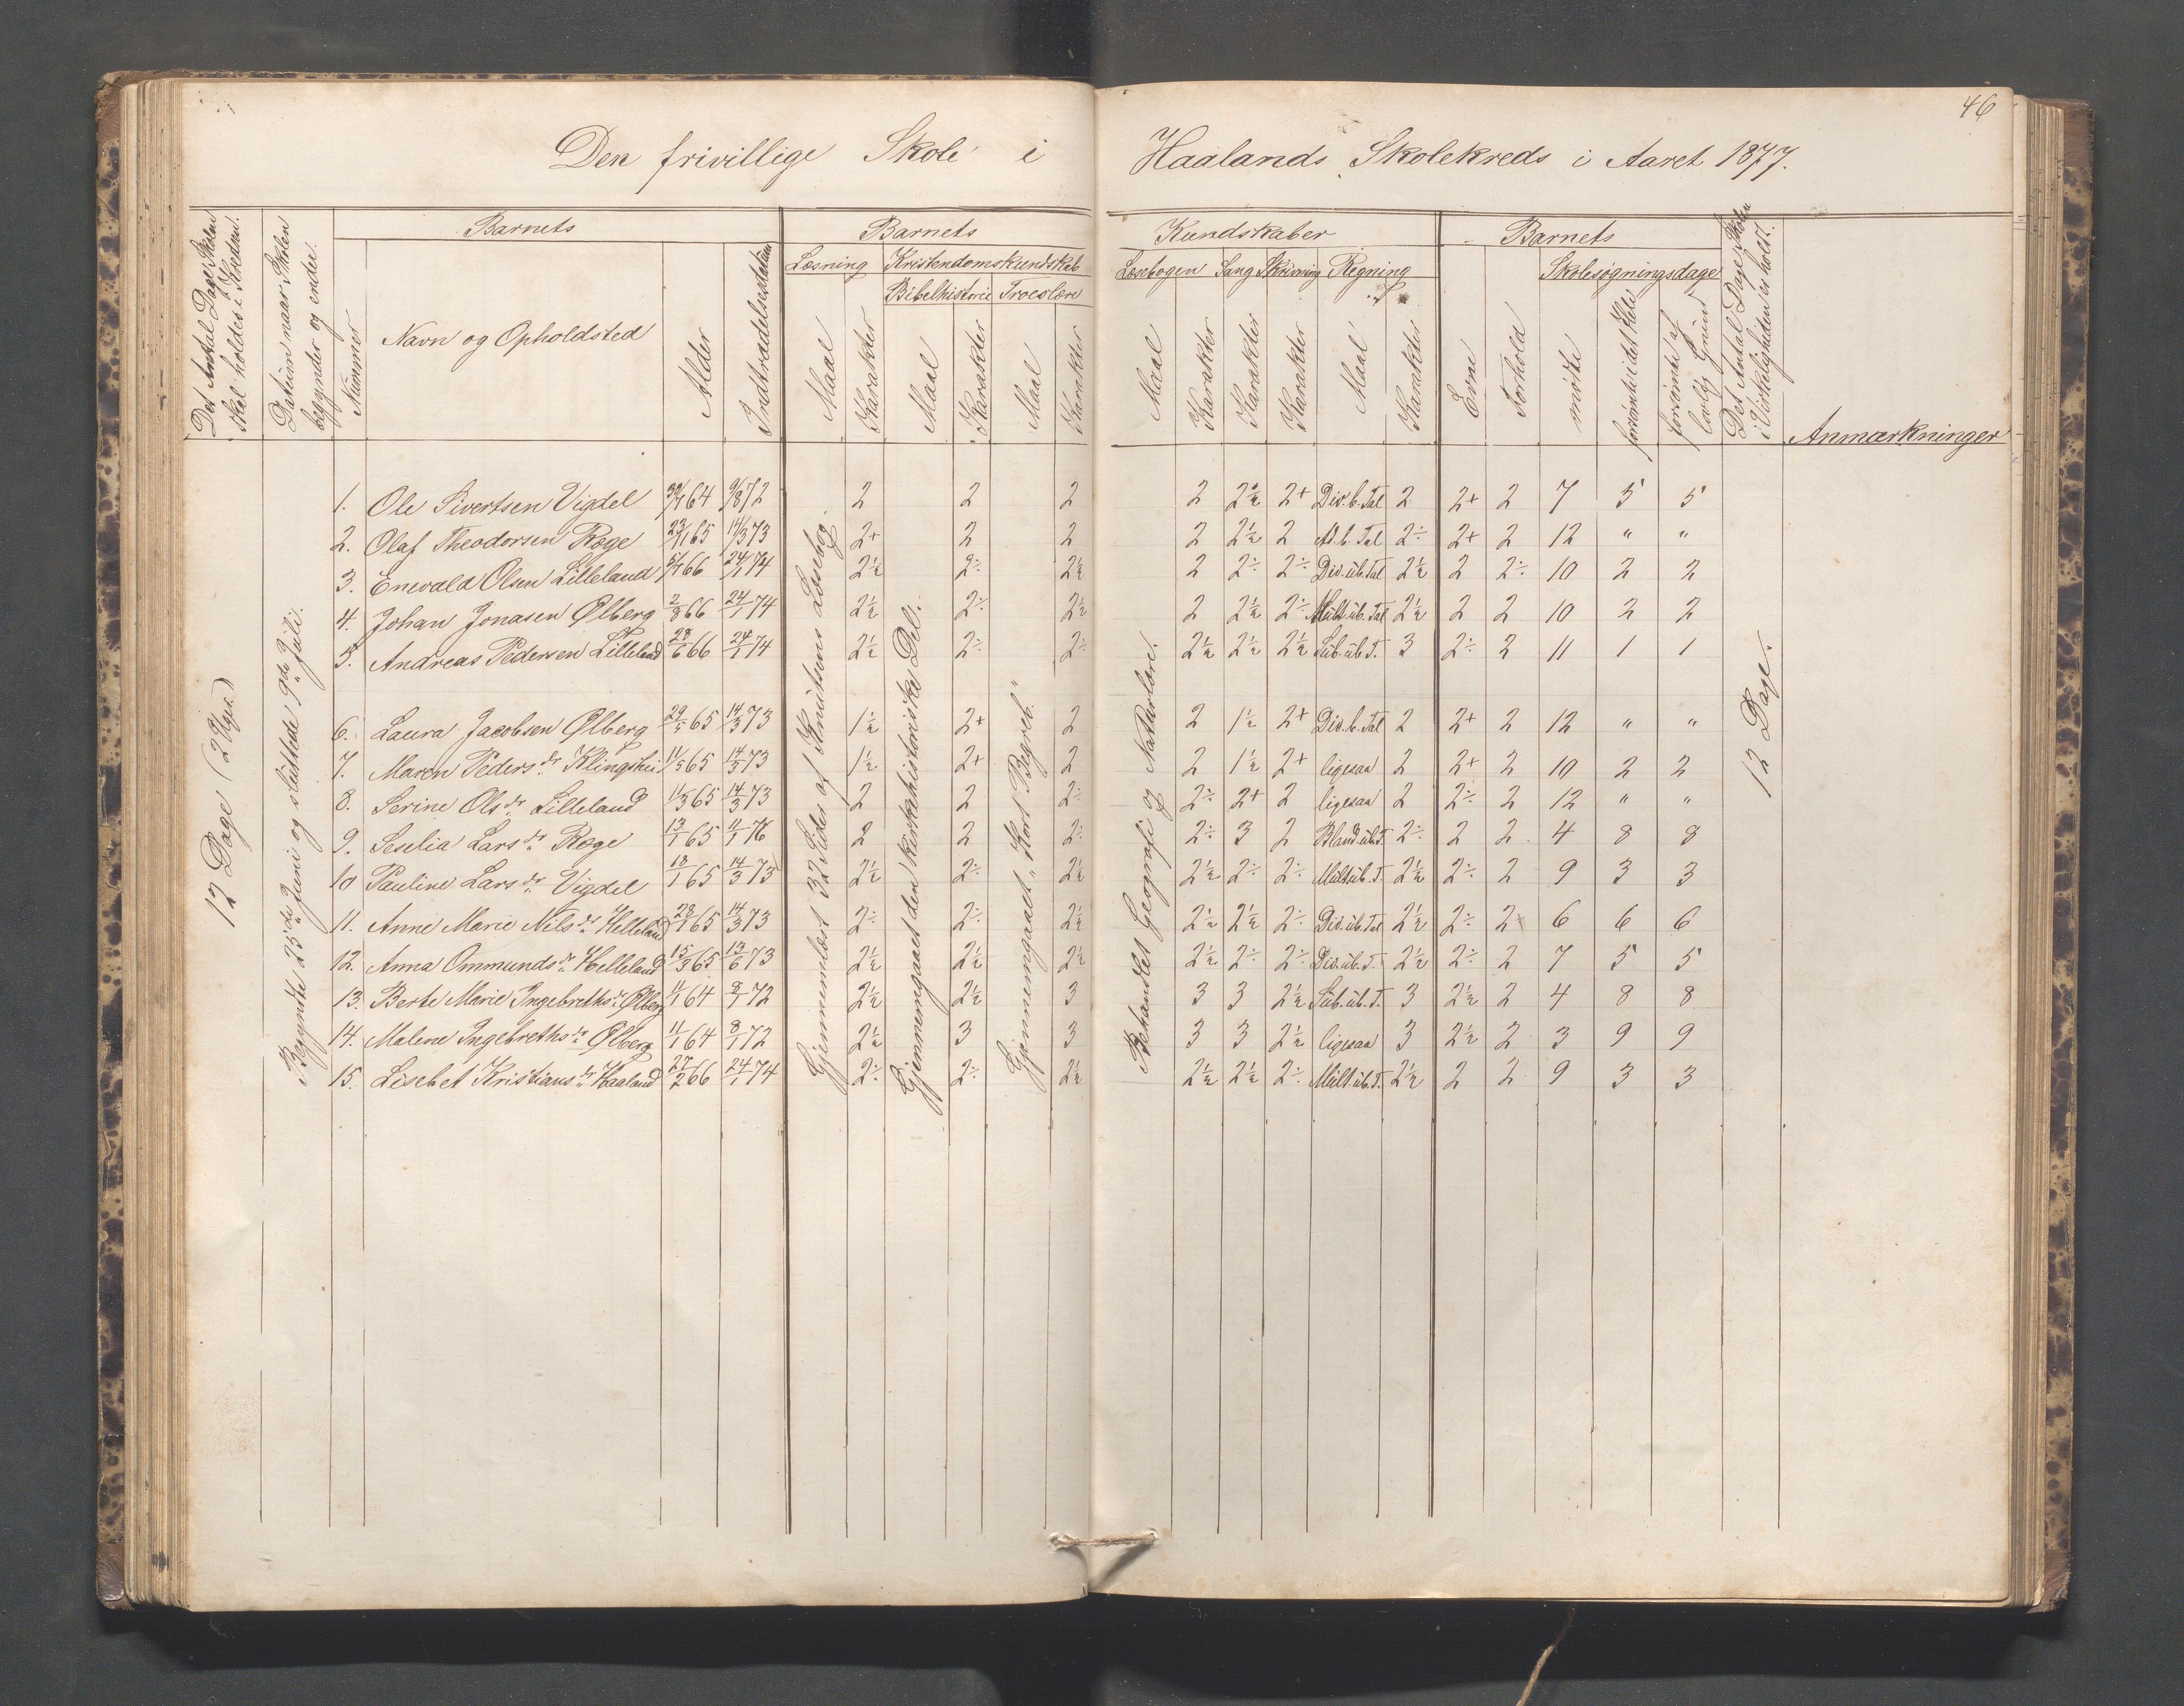 46
Den frivillige Skole i Haalands Skolekreds i Aaret 1877.
Det Antal Dage Skolen skal holdes i Kredsen.
Datum naar Skolen begynder og ender.
Barnets
Nummer
Navn og Opholdsted
Alder
Indtrædelsesdatum
Barnets
Læsning
Kristendomskundskab
Bibelhistorie
Troeslære
Maal
Karakter
Maal
Karakter
Maal
Karakter
Kundskaber
Læsebogen
Sang
Skrivning
Regning
Maal
Karakter
Karakter
Karakter
Maal
Karakter
Barnets
Evne
Forhold
Skolesøgningsdage
mødte
forsømte i det Hele
forsømte af lovlig Grund
Det Antal Dage Skolen i Virkeligheden er holdt.
Anmærkninger
12 Dage (2 Uger.)
Begyndte 25de Juni og sluttede 9de Juli.
Gjennemlæst 32 Sider af Knutsens Læsebog.
Gjennemgaaet den kirkehistoriske Del.
Gjennemgaaet "Kort Begreb."
Behandlet Geografi og Naturlære.
12 Dage.
1. Ole Sivertsen Vigdel 30/7 64 9/8 72 2 2 2 2 2½ 2+ Div. b. Tal 2 2+ 2 7 5 5
2. Olaf Theodorsen Røge 23/1 65 14/3 73 2+ 2 2 2 2½ 2 Ad. b. Tal 2÷ 2+ 2 12 " "
3. Enevald Olsen Lilleland 5/7 66 24/1 74 2½ 2÷ 2½ 2 2÷ 2÷ Div. üb. Tal 2½ 2 2÷ 10 2 2
4. Johan Jonasen Ølberg 2/8 66 24/1 74 2½ 2÷ 2½ 2 2½ 2÷ Mult. üb. Tal 2½ 2 2 10 2 2
5. Andreas Pedersen Lilleland 28/6 66 24/1 74 2½ 2÷ 2÷ 2½ 2½ 2½ Sub. üb. T. 3 2÷ 2 11 1 1
6. Laura Jacobsen Ølberg 29/5 65 14/3 73 1½ 2+ 2 2 1½ 2+ Div. b. Tal 2 2+ 2 12 " "
7. Maren Pedersdr Klingshei 11/5 65 14/3 73 1½ 2+ 2 2 1½ 2+ ligesaa 2 2+ 2 10 2 2
8. Serine Olsdr Lilleland 11/3 65 14/3 73 2 2 2÷ 2÷ 2+ 2 ligesaa 2 2÷ 2 12 " "
9. Seselia Larsdr Røge 13/1 65 11/1 76 2 2 2÷ 2÷ 3 2 Bland. üb. T. 2÷ 2 2 4 8 8
10 Pauline Larsdr Vigdel 18/1 65 14/3 73 2½ 2÷ 2½ 2½ 2÷ 2÷ Mult üb. T. 2½ 2÷ 2 9 3 3
11. Anne Marie Nilsdr Helleland 28/1 65 14/3 73 2÷ 2÷ 2½ 2½ 2½ 2÷ Div. üb. Tal 2½ 2÷ 2 6 6 6
12. Anna Ommundsdr Helleland 15/3 65 13/6 73 2½ 2½ 2½ 2½ 2÷ 2÷ Div. üb. T. 2½ 2÷ 2 7 5 5
13. Berte Marie Ingebrethsdr Ølberg 11/1 64 8/1 72 2½ 2½ 3 3 3 2½ Sub. üb. T. 3 2½ 2 4 8 8
14. Malene Ingebrethsdr Ølberg 11/1 64 8/1 72 2½ 3 3 3 3 2½ ligesaa 3 2½ 2 3 9 9
15. Lisebet Kristiansdr Haaland 27/2 66 24/1 74 2÷ 2÷ 2½ 2½ 2½ 2÷ Mult üb. T. 2½ 2 2 9 3 3